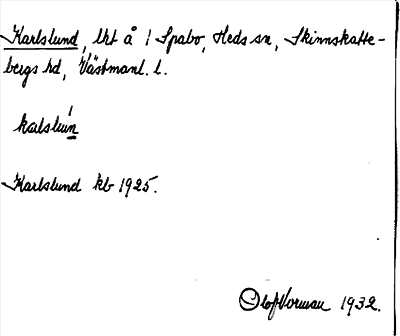 Karlslund, lht å 1 Spabo, Heds sn, Skinnskatte-
bergs hd, Västmanl. l.
kalslun
Karlslund kb 1925.
Olof Vorman 1932.